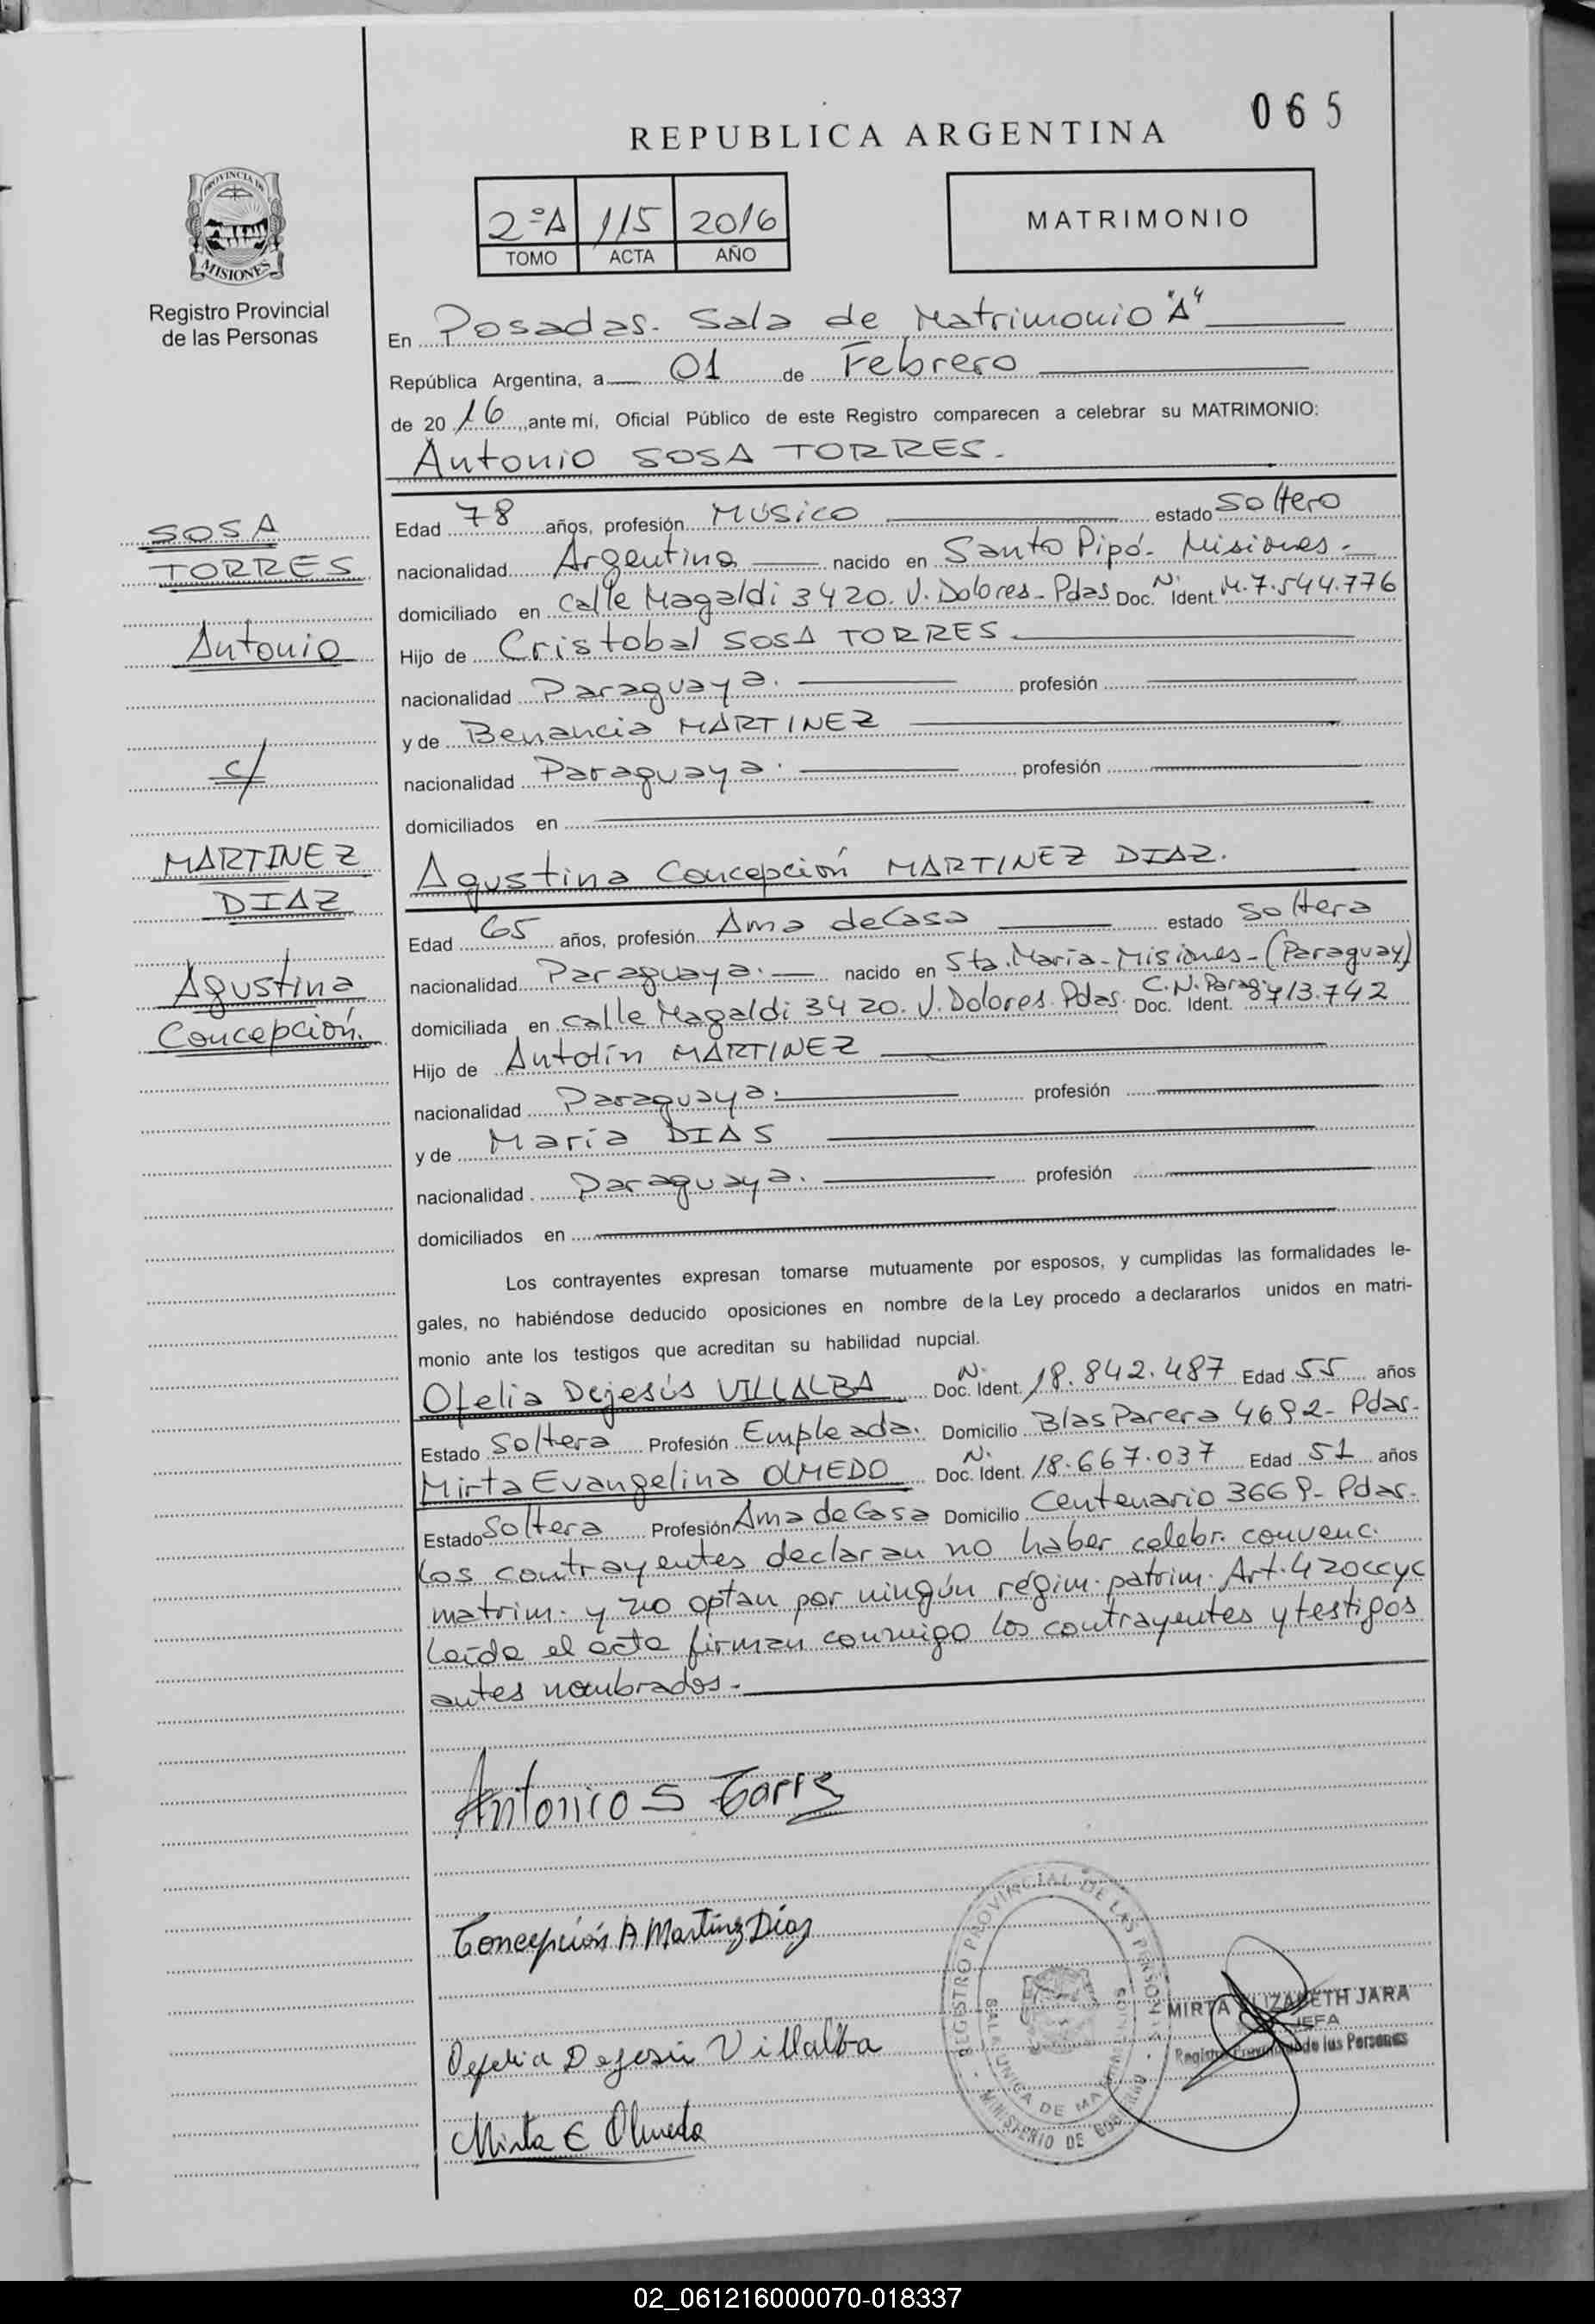 065
REPUBLICA ARGENTINA
PROVINCIA DE
MISIONES
Registro Provincial
de las Personas
2ºA 115 2016
TOMO ACTA AÑO
MATRIMONIO
En Posadas. Sala de Matrimonio "A"
República Argentina, a 01 de Febrero
de 2016, ante mí, Oficial Público de este Registro comparecen a celebrar su MATRIMONIO:
Antonio SOSA TORRES.
SOSA
TORRES
Antonio
c/
MARTINEZ
DIAZ
Agustina
Concepción.
Edad 78 años, profesión Músico estado Soltero
nacionalidad Argentina nacido en Santo Pipó- Misiones.-
domiciliado en Calle Magaldi 3420. V. Dolores- Pdas Doc. Ident. Nº M.7.544.776
Hijo de Cristobal SOSA TORRES.
nacionalidad Paraguaya. profesión
y de Benancia MARTINEZ
nacionalidad Paraguaya. profesión
domiciliados en
Agustina Concepción MARTINEZ DIAZ.
Edad 65 años, profesión Ama de Casa estado Soltera
nacionalidad Paraguaya. nacido en Sta. María-Misiones-(Paraguay)
domiciliada en Calle Magaldi 3420. V. Dolores. Pdas. Doc. Ident. C.N. Parag. 713.742
Hijo de Antolín MARTINEZ
nacionalidad Paraguaya. profesión
y de María DIAS
nacionalidad Paraguaya. profesión
domiciliados en
Los contrayentes expresan tomarse mutuamente por esposos, y cumplidas las formalidades le-
gales, no habiéndose deducido oposiciones en nombre de la Ley procedo a declararlos unidos en matri-
monio ante los testigos que acreditan su habilidad nupcial.
Ofelia Dejesús VILLALBA Doc. Ident. Nº 18.842.487 Edad 55 años
Estado Soltera Profesión Empleada. Domicilio Blas Parera 4692- Pdas.
Mirta Evangelina OLMEDO Doc. Ident. Nº 18.667.037 Edad 51 años
Estado Soltera Profesión Ama de Casa Domicilio Centenario 3669- Pdas.
Los contrayentes declaran no haber celebr. convenc.
matrim. y no optan por ningún régim. patrim. Art. 420 CCyC
Leída el acta firman conmigo los contrayentes y testigos
antes nombrados.-
Antonio S Torres
Concepción A Martínez Díaz
Ofelia Dejesú Villalba
Mirta E Olmedo
REGISTRO PROVINCIAL DE LAS PERSONAS
MINISTERIO DE GOBIERNO
SALA UNICA DE MATRIMONIOS
MIRTA ELIZABETH JARA
JEFA
Registro Provincial de las Personas
02_061216000070-018337